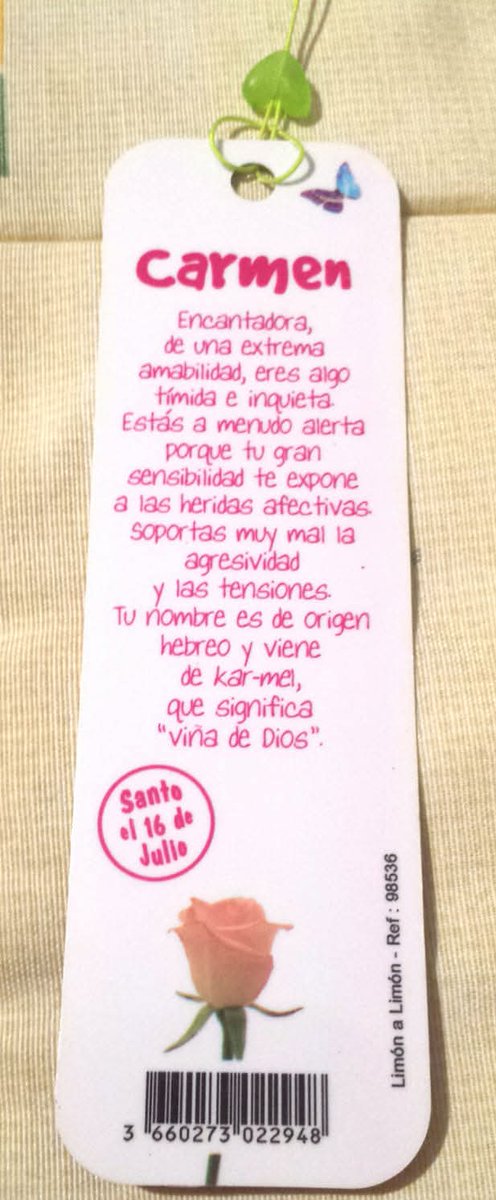 Carmen
Encantadora,
de una extrema
amabilidad, eres algo
tímida e inquieta.
Estás a menudo alerta
porque tu gran
sensibilidad te expone
a las heridas afectivas.
Soportas muy mal la
agresividad
y las tensiones.
Tu nombre es de origen
hebreo y viene
de kar-mel,
que significa
"viña de Dios".
Santo
el 16 de
Julio
Limón a Limón - Ref : 98536
3 660273 022948